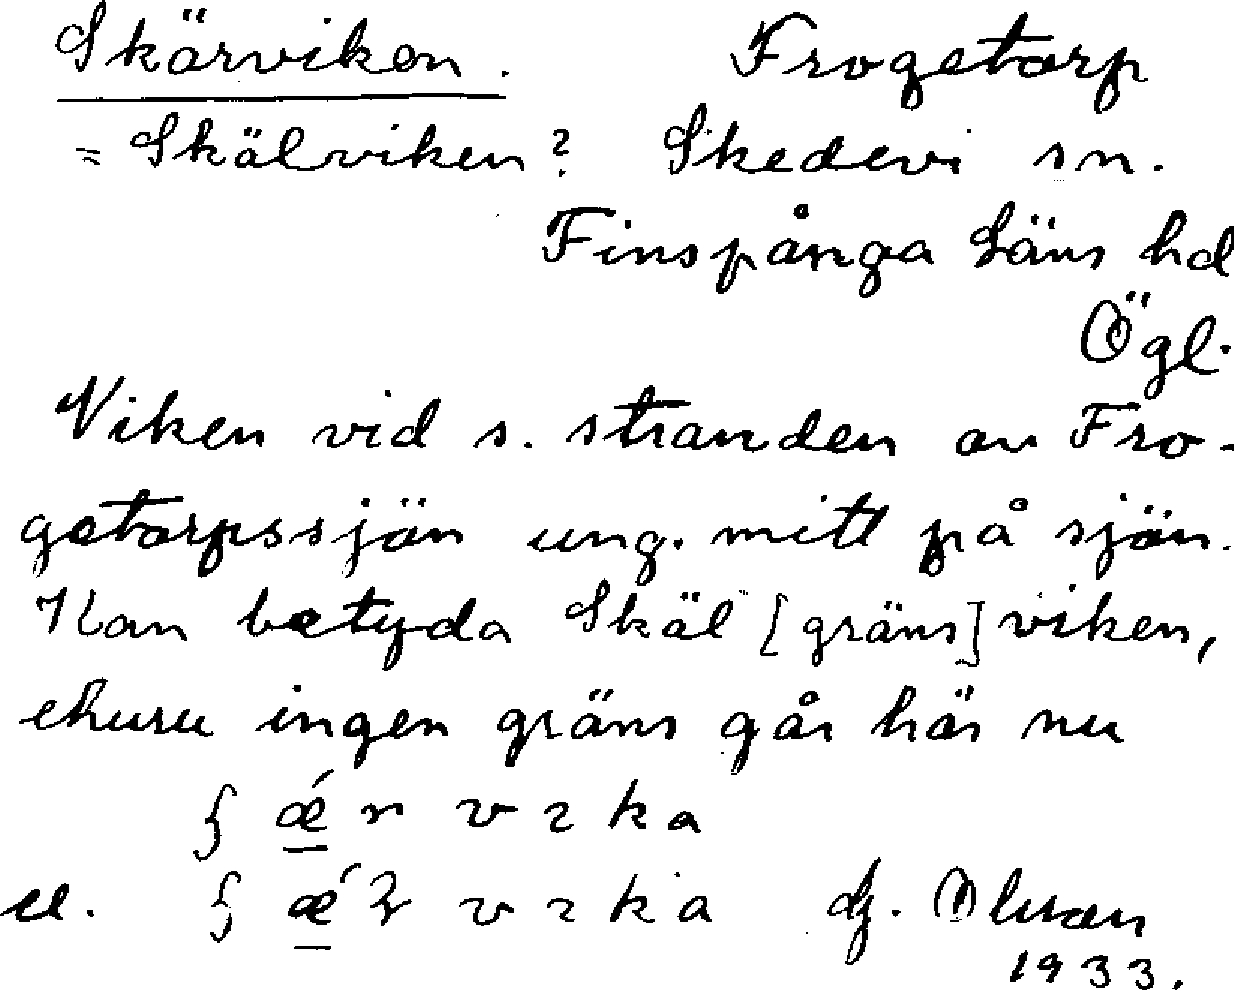 Skärviken. Frogetorp
= Skälviken? Skedevi sn.
Finspånga läns hd
Ögl.
Viken vid s. stranden av Fro-
getorpssjön ung. mitt på sjön.
Kan betyda Skäl [gräns] viken,
ehuru ingen gräns går här nu
el.
Olsson
1933.